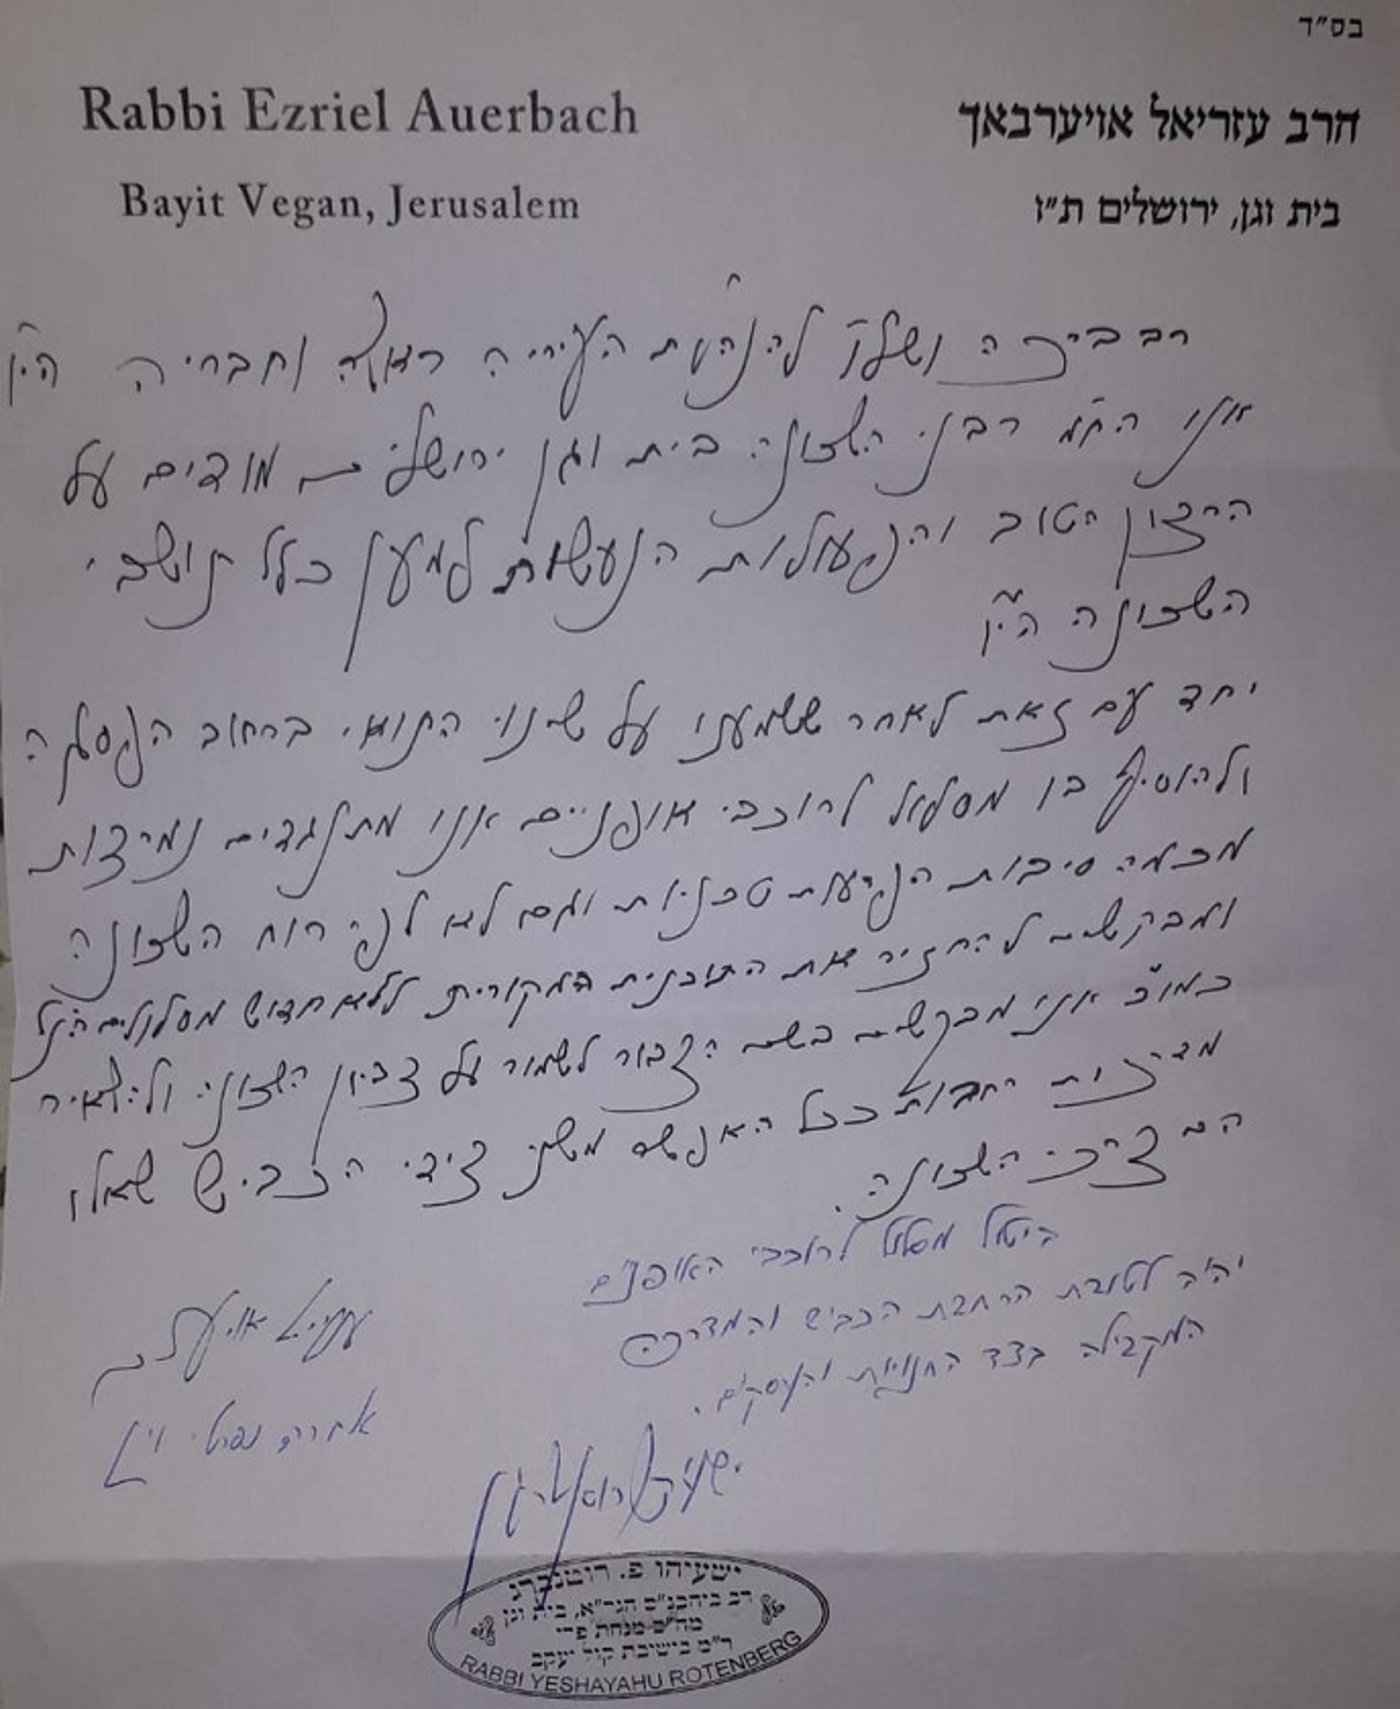 בס״ד
Rabbi Ezriel Auerbach
הרב עזריאל אויערבאך
Bayit Vegan, Jerusalem
בית וגן, ירושלים ת״ו
רב ברכה ושלו׳ להנהלת העיריה ראשה וחבריה הי״ו
אנו הח״מ רבני השכונה בית וגן ירושלים מודים על
הרצון הטוב והפעולות הנעשות למען כלל תושבי
השכונה הי״ו
יחד עם זאת לאחר ששמענו על שינוי התוואי ברחוב הפסגה
ולהוסיף בו מסלול לרוכבי אופניים אנו מתנגדים נמרצות
מכמה סיבות הפרעות טכניות וגם לא לפי רוח השכונה
ומבקשים להחזיר את התוכנית המקורית ללא חדוש מסלולים הנ״ל
כמו״כ אנו מבקשים בשם הצבור לשמור על צביון השכונה ולהשאיר
מדרכות רחבות ככל האפשר משני צידי הכביש שאלו
הם צרכי השכונה.
ביטול מסלול לרוכבי האופנים
יהיה לטובת הרחבת הכביש והמדרכה
המקבילה בצד החנויות והעסקים.
עזריאל אויערבאך
אהרן נפתלי
ישעיהו רוטנברג
ישעיהו פ. רוטנברג
רב ביהכנ״ס הגר״א, בית וגן
מח״ס מנחת פרי
ר״מ בישיבת קול יעקב
RABBI YESHAYAHU ROTENBERG